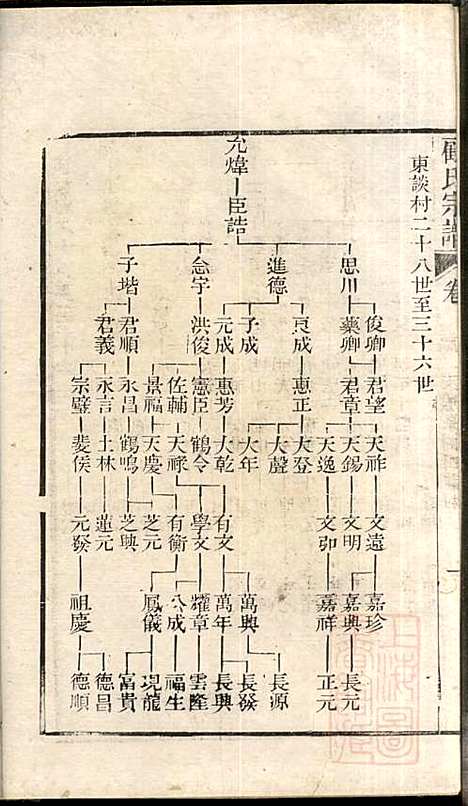 顧氏宗譜
卷
東談村二十八世至三十六世
允煒 臣誥
思川 進德 念宇 子堦
俊卿 藥卿 良成 子成 元成 洪俊 君順 君義
君望 君章 惠正 惠芳 憲臣 佐輔 景福 永昌 永言 宗璧
天祥 天錫 天逸 大登 大聲 大年 大乾 鶴令 天祿 天慶 鶴鳴 士林 斐侯
文遠 文明 文卯 有文 學文 有衡 芝元 芝興 蓮元 元發
嘉珍 嘉興 嘉祥 萬興 萬年 耀章 公成 鳳儀 祖慶
長元 正元 長源 長發 長興 雲隆 福生 現龍 富貴 德昌 德順